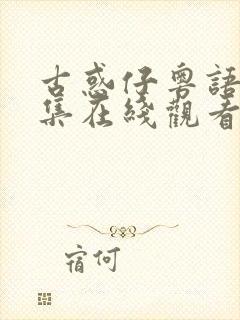 古惑仔粵語
集在綫觀看
宿何